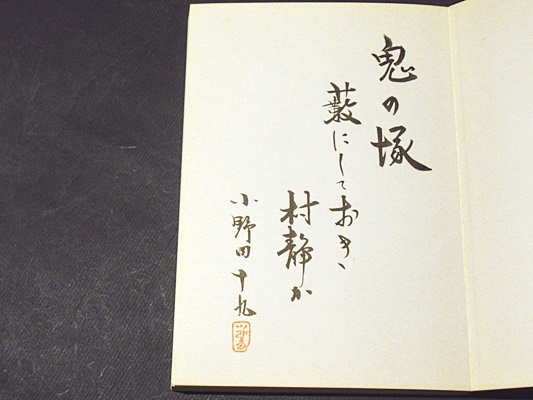 鬼の塚
藪にしておき
村静か
小野田十九